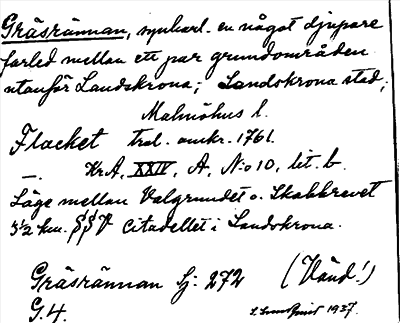 Gräsrännan, synbarl. en något djupare
farled mellan ett par grundområden
utanför Landskrona; Landskrona stad;
Malmöhus l.
Flacket trol. omkr. 1761.
—. Kr A, XXIV, A, N:o 10, lit. b.
Läge mellan Valgrundet o. Skabbrevet
3½ km. SSV Citadellet i Landskrona.
Gräsrännan Sj: 272 (Vänd!)
G. 4. 1927.